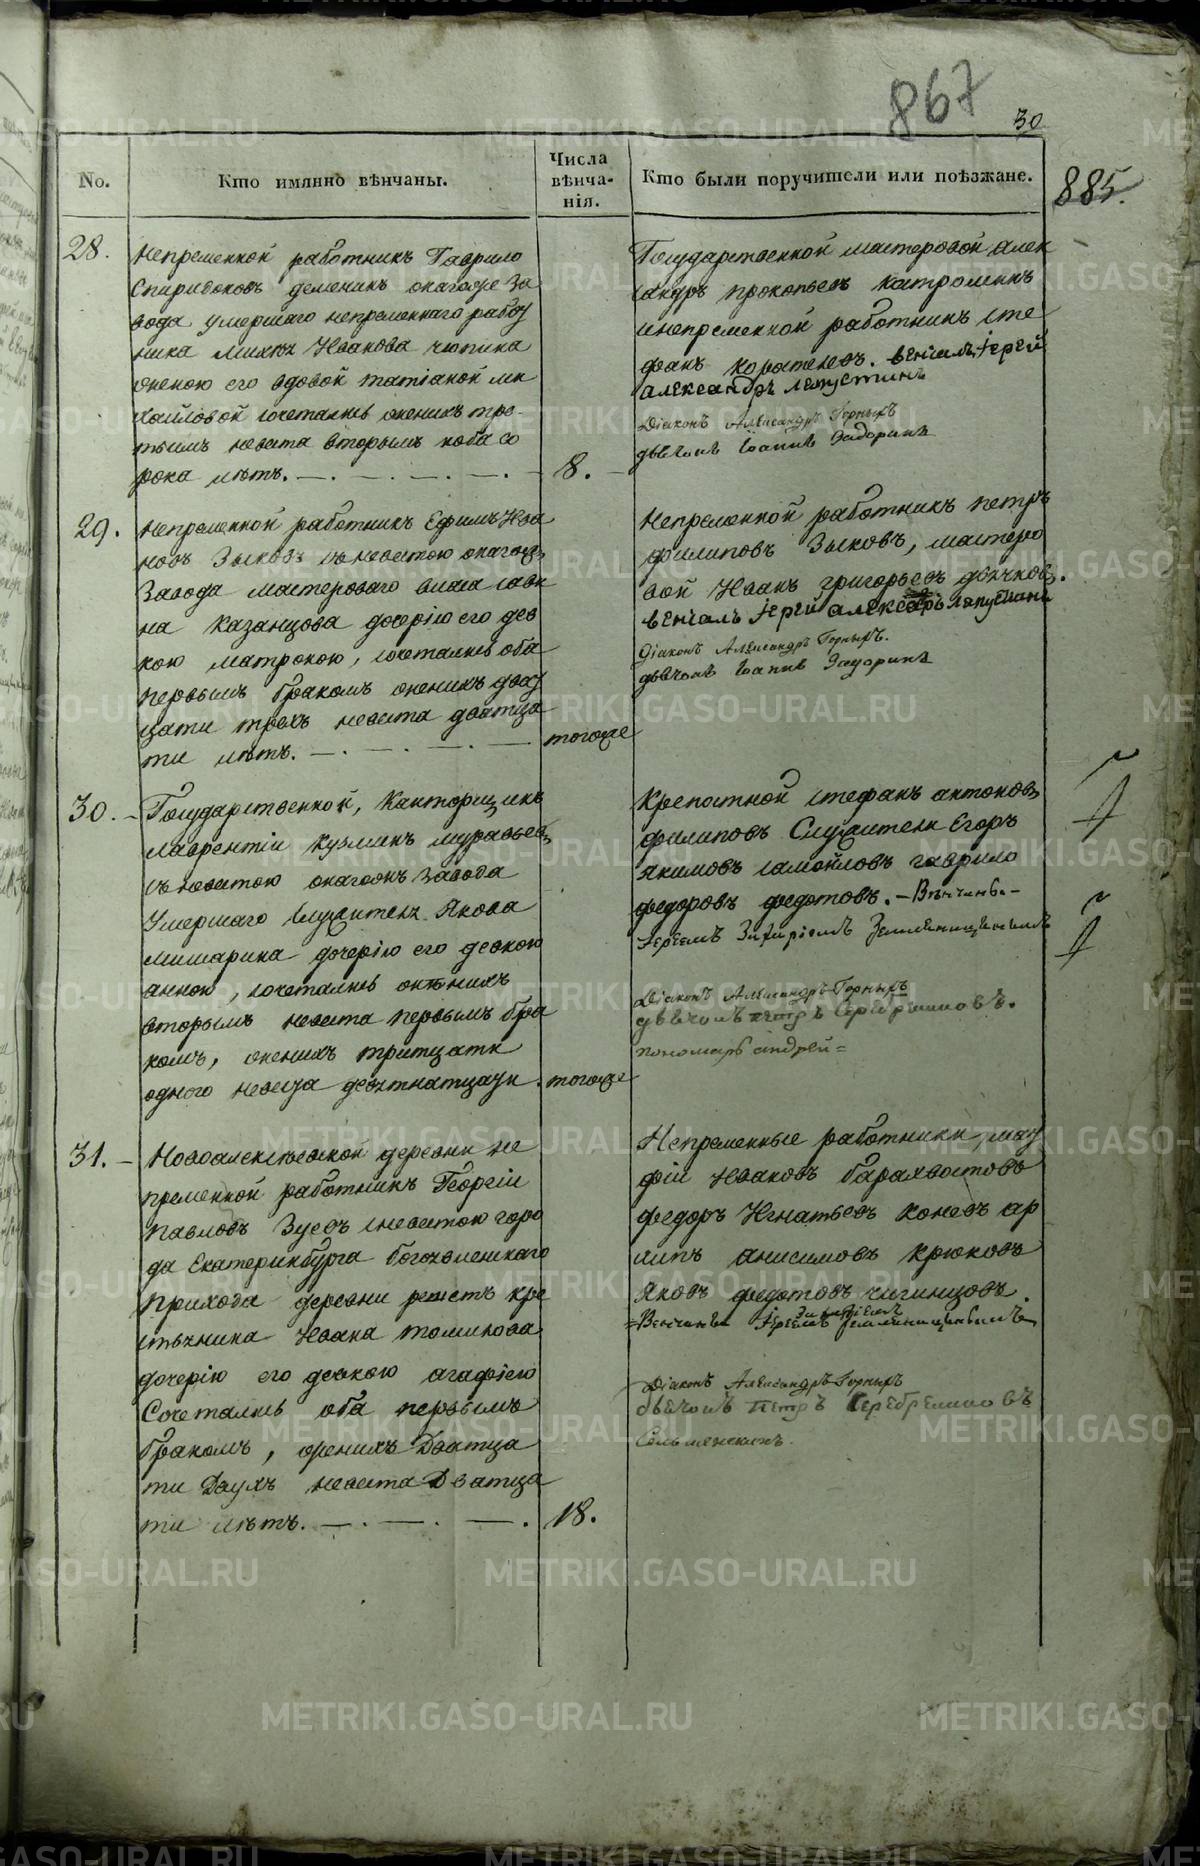 867
30
885.
No.
Кто имянно вѣнчаны.
Числа
вѣнча-
нія.
Кто были поручители или поѣзжане.
28.
Непременной работникъ Гаврило
Спиридоновъ деменинъ онагоже За
вода умершаго непременнаго работ
ника Ивановa чюпина
женою его вдовой татіаной ми
хайловой сочеталися женихъ тре-
тьимъ невеста вторымъ оба со
рока летъ.
8.
Государственной мастеровой Алек
сандръ прокопьевъ
инепременной работникъ сте
фанъ коротевевъ. венчалъ іерей
александръ лепустинъ
Діаконъ Александръ Горныхъ
дьячокъ Іоаннъ
29.
Непременной работникъ Ефимъ Ива
новъ Зыковъ съневестою онагож
Завода мастероваго сави
на Казанцова дочерію его дев
кою матроною, сочеталися оба
первымъ бракомъ женихъ дват
цати трехъ невеста дватца
ти летъ.
тогоже
Непременной работникъ петръ
филиповъ Зыковъ, мастеро
вой Иванъ григорьевъ дьячков.
венчалъ іерей александръ лапустинъ
Діаконъ Александръ Горныхъ.
дьячокъ Іоаннъ
30.
Государственной, Канторщикъ
лаврентіи кузминъ муравьев
съневестою онагожъ завода
Умершаго Служителя Якова
мишарина дочерію его девкою
анною, сочеталися женихъ
вторымъ невеста первымъ бра
комъ, женихъ тритцати
одного невеста девятнатцати.
тогоже
Крепостной стефанъ антонов
филиповъ Служители Егоръ
якимовъ самойловъ гаврило
федоровъ федотовъ. - Венчаны -
Іереемъ Захаріемъ Земляницынымъ
Діаконъ Александръ Горныхъ
дьячокъ петръ Серебрениковъ.
пономарь андрей=
31.
Новоалексеевской деревни не
пременной работникъ Георгіи
павловъ Зуевъ сневестою горо
да Екатеринбурга богоявленскаго
прихода деревни решетъ кре
стьянина Ивана томилова
дочерію его девкою агафіею
Сочеталися оба первымъ
бракомъ, женихъ Дватца
ти Двухъ невеста Дватца
ти летъ.
18.
Непременные работники, мау
фіи Ивановъ барахвостовъ
федоръ Игнатьевъ коневъ ар
хипъ анисимовъ крюковъ
Яковъ федотовъ чигинцовъ.
=Венчаны Іереемъ Захаріемъ Земляницынымъ
Діаконъ Александръ Горныхъ
дьячокъ Петръ Серебрениковъ
METRIKI.GASO-URAL.RU